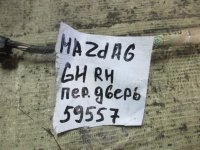 MAZdA6
GH RH
пер. дверь
59557